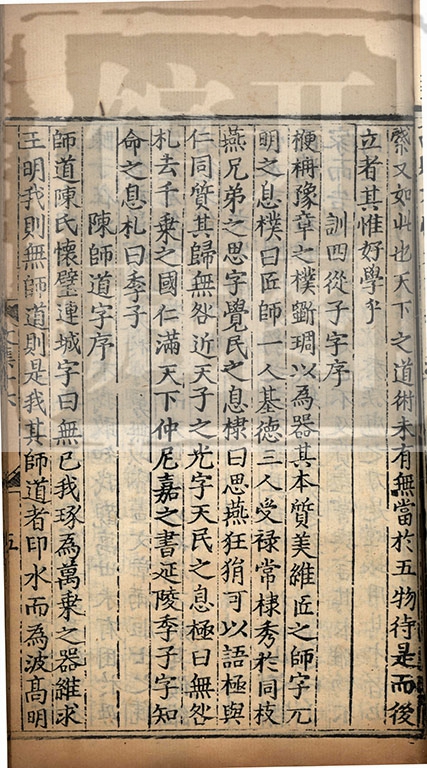 縻又如此也天下之道術未有無當於五物待是而後
立者其惟好學乎
訓四從子字序
楩柟豫章之樸斵琱以為器其本質美維匠之師字元
明之息樸曰匠師一人基德三人受禄常棣秀於同枝
燕兄弟之思字覺民之息棣曰思燕狂狷可以語極與
仁同質其歸無咎近天子之光字天民之息極曰無咎
札去千乗之國仁滿天下仲尼嘉之書延陵季子字知
命之息札曰季子
陳師道字序
師道陳氏懷璧連城字曰無已我琢為萬乗之器維求
王明我則無師道則是我其師道者印水而為波髙明
文集
五